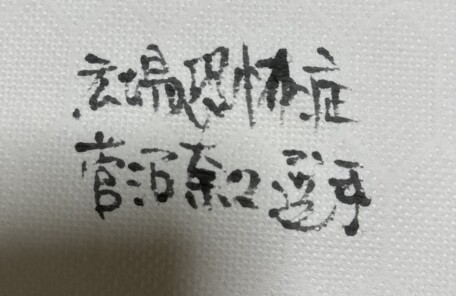 広場恐怖症
菅沼菜々選手